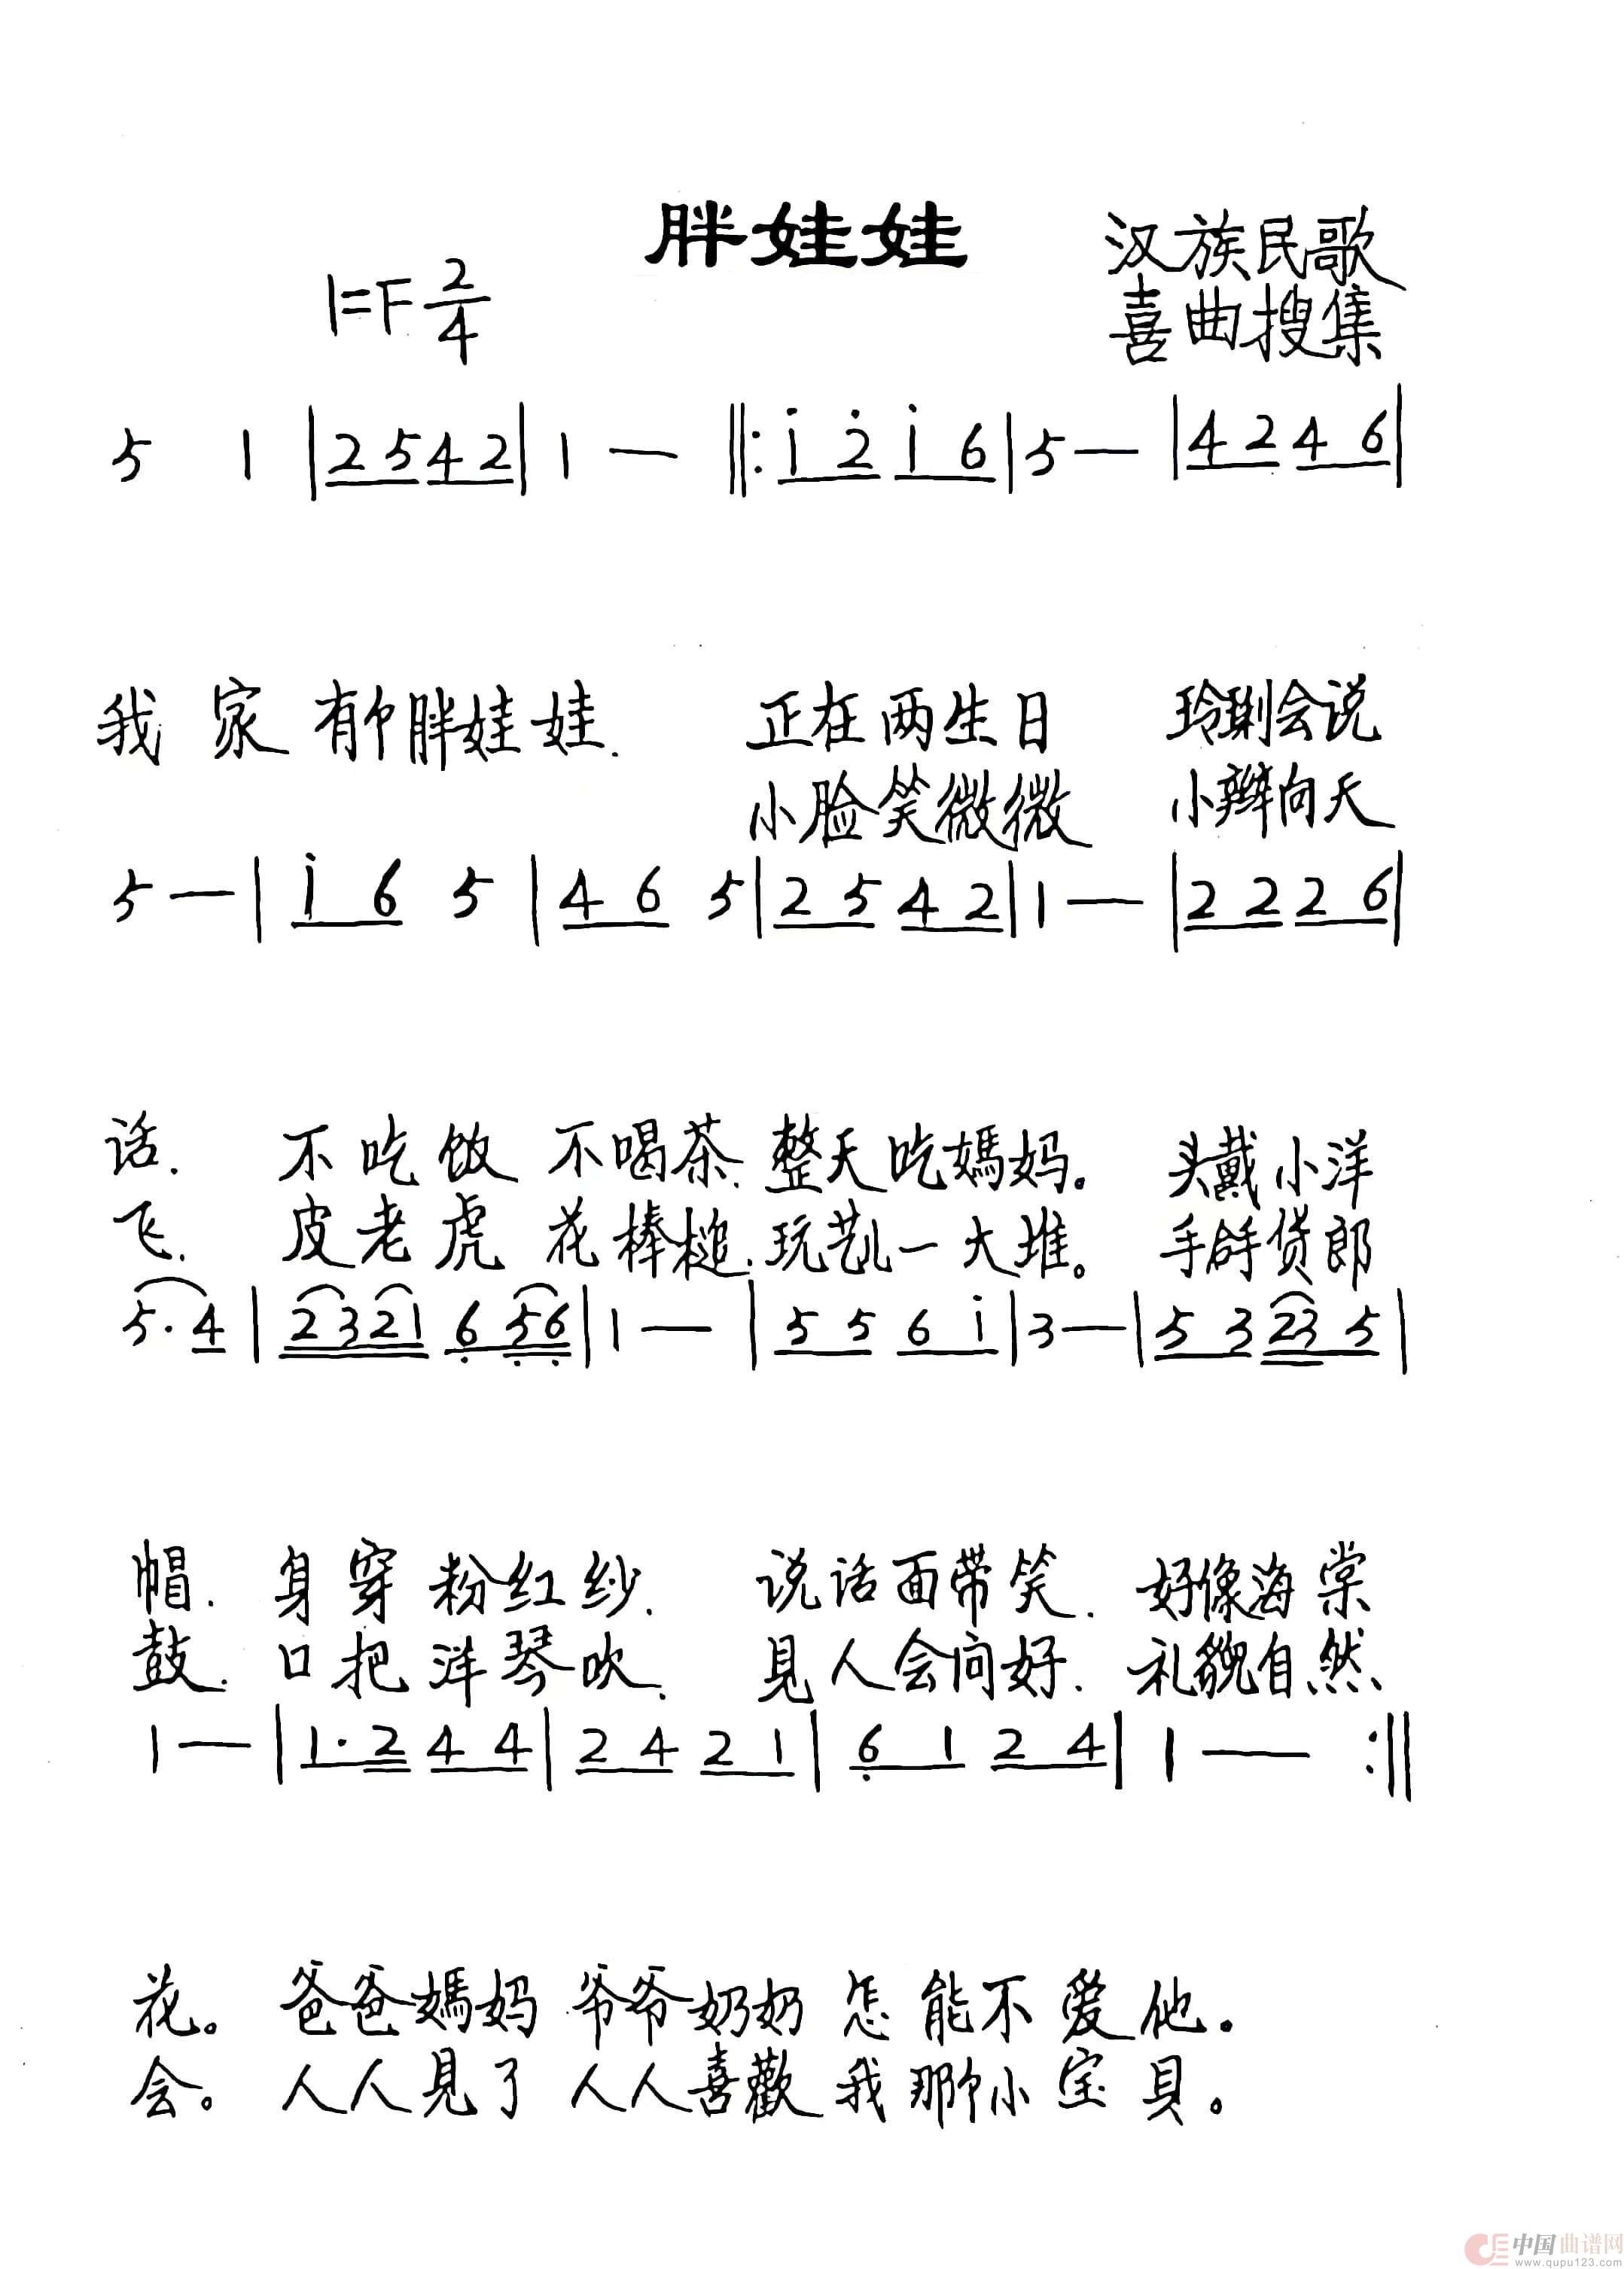 胖娃娃
汉族民歌
1=F 2/4
喜曲搜集
5 1 | 2 5 4 2 | 1 — ‖: i 2̇ i 6 | 5 — | 4 2 4 6 |
我家有个胖娃娃. 正在两生日 玲琍会说
小脸笑微微 小辫向天
5 — | i 6 5 | 4 6 5 | 2 5 4 2 | 1 — | 2 2 2 6 |
话. 不吃饭 不喝茶. 整天吃媽妈。 头戴小洋
飞. 皮老虎 花棒槌. 玩艺儿一大堆。 手掰货郎
5· 4 | 2 3 2 1 6̣ 5̣ 6̣ | 1 — | 5 5 6 i | 3 — | 5 3 2 3 5 |
帽. 身穿粉红纱. 说话面带笑. 好像海棠
鼓. 口把洋琴吹. 見人会问好. 礼貌自然
1 — | 1· 2 4 4 | 2 4 2 1 | 6̣ 1 2 4 | 1 — :‖
花。 爸爸媽妈 爷爷奶奶 怎能不爱他.
会。 人人見了 人人喜歡 我那个小宝贝。
中国曲谱网
www.qupu123.com